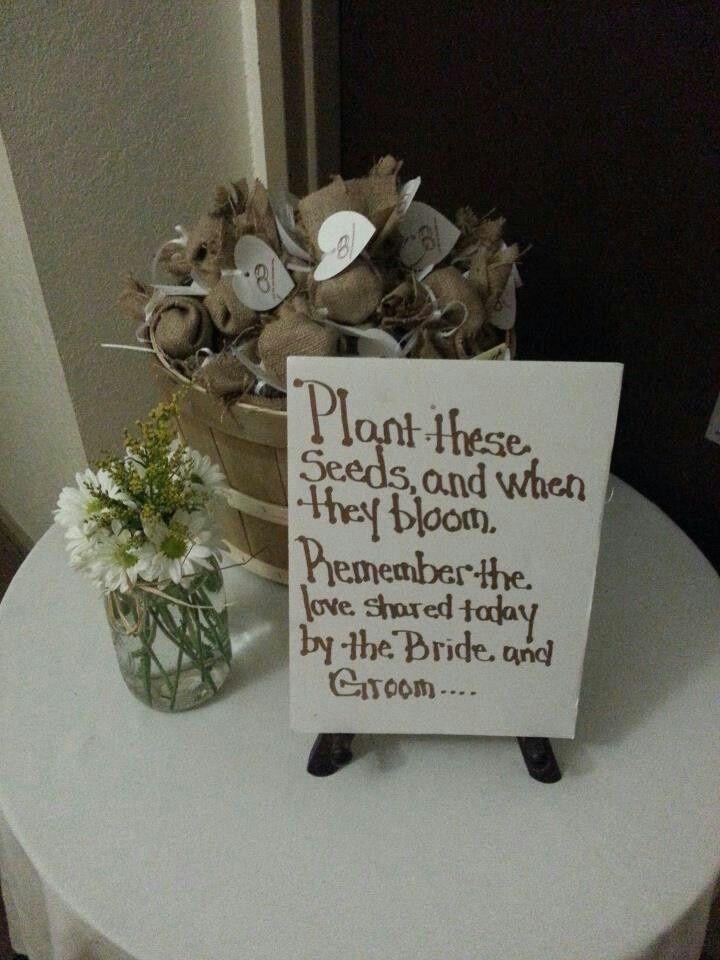 Plant these
Seeds, and when
they bloom.
Remember the
love shared today
by the Bride and
Groom....